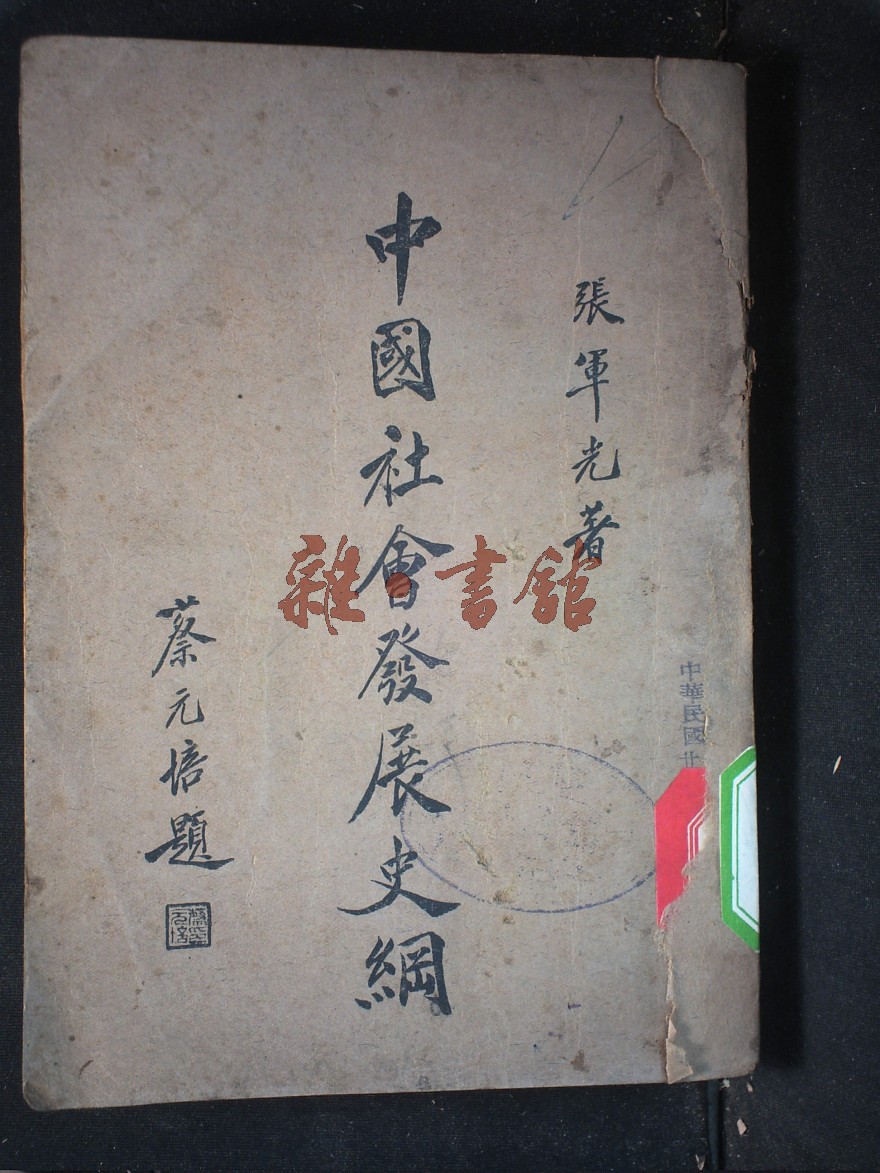 張軍光著
中國社會發展史綱
蔡元培題
蔡元培
中華民國廿
雜·書舘